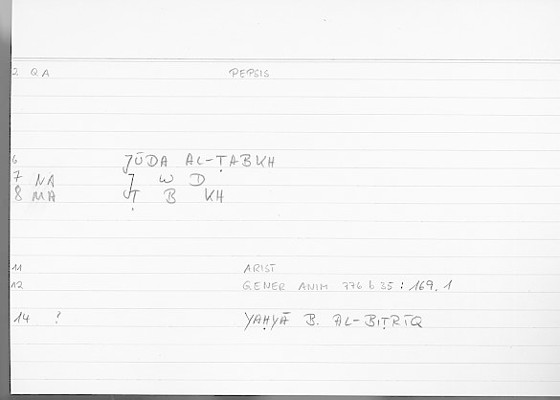 2 QA PEPSIS
6 J̌ŪDA AL-ṬABKH
7 NA J̌ W D
8 MA Ṭ B KH
11 ARIST
12 GENER ANIM 776 b 35 : 169.1
14 ? YAḤYĀ B. AL-BIṬRĪQ